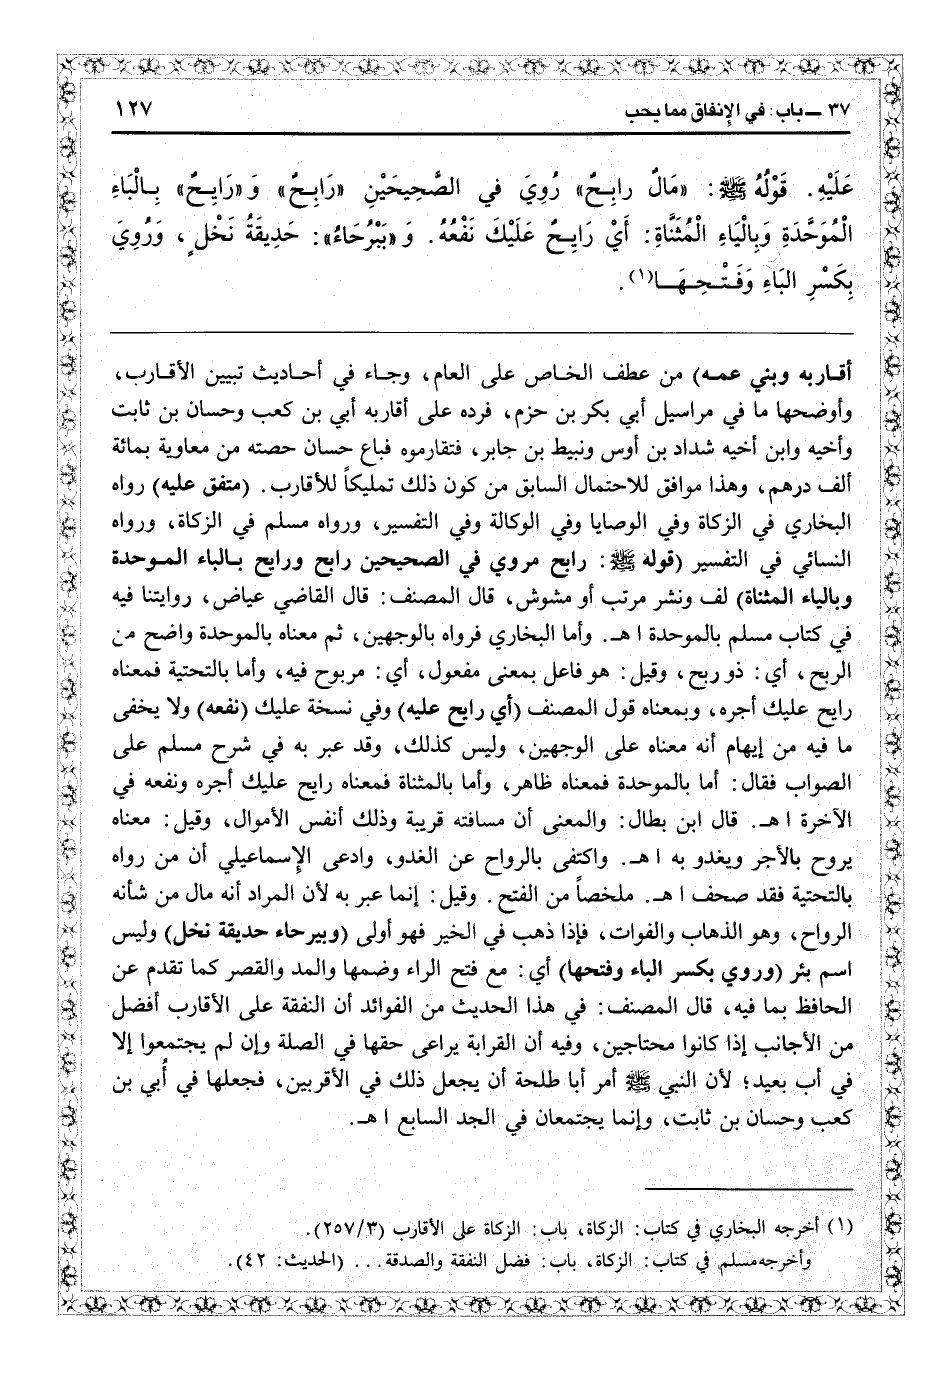 ٣٧ ــ باب: في الإنفاق مما يحب ١٢٧
عَلَيْهِ. قَوْلُهُ ﷺ: «مَالٌ رابِحٌ» رُوِيَ في الصَّحِيحَيْنِ «رَابِحٌ» وَ «رَايِحٌ» بِالْبَاءِ
الْمُوَحَّدَةِ وَبِالْيَاءِ الْمُثَنَّاةِ: أَيْ رَايِحٌ عَلَيْكَ نَفْعُهُ. وَ «بَيْرُحَاءُ»: حَدِيقَةُ نَخْلٍ، وَرُوِيَ
بِكَسْرِ البَاءِ وَفَتْحِهَا(١).
أقاربه وبني عمه) من عطف الخاص على العام، وجاء في أحاديث تبيين الأقارب،
وأوضحها ما في مراسيل أبي بكر بن حزم، فرده على أقاربه أبي بن كعب وحسان بن ثابت
وأخيه وابن أخيه شداد بن أوس ونبيط بن جابر، فتقارموه فباع حسان حصته من معاوية بمائة
ألف درهم، وهذا موافق للاحتمال السابق من كون ذلك تمليكاً للأقارب. (متفق عليه) رواه
البخاري في الزكاة وفي الوصايا وفي الوكالة وفي التفسير، ورواه مسلم في الزكاة، ورواه
النسائي في التفسير (قوله ﷺ: رابح مروي في الصحيحين رابح ورايح بالباء الموحدة
وبالياء المثناة) لف ونشر مرتب أو مشوش، قال المصنف: قال القاضي عياض، روايتنا فيه
في كتاب مسلم بالموحدة ا هـ. وأما البخاري فرواه بالوجهين، ثم معناه بالموحدة واضح من
الربح، أي: ذو ربح، وقيل: هو فاعل بمعنى مفعول، أي: مربوح فيه، وأما بالتحتية فمعناه
رايح عليك أجره، وبمعناه قول المصنف (أي رايح عليه) وفي نسخة عليك (نفعه) ولا يخفى
ما فيه من إيهام أنه معناه على الوجهين، وليس كذلك، وقد عبر به في شرح مسلم على
الصواب فقال: أما بالموحدة فمعناه ظاهر، وأما بالمثناة فمعناه رايح عليك أجره ونفعه في
الآخرة ا هـ. قال ابن بطال: والمعنى أن مسافته قريبة وذلك أنفس الأموال، وقيل: معناه
يروح بالأجر ويغدو به ا هـ. واكتفى بالرواح عن الغدو، وادعى الإسماعيلي أن من رواه
بالتحتية فقد صحف ا هـ. ملخصاً من الفتح. وقيل: إنما عبر به لأن المراد أنه مال من شأنه
الرواح، وهو الذهاب والفوات، فإذا ذهب في الخير فهو أولى (وبيرحاء حديقة نخل) وليس
اسم بئر (وروي بكسر الباء وفتحها) أي: مع فتح الراء وضمها والمد والقصر كما تقدم عن
الحافظ بما فيه، قال المصنف: في هذا الحديث من الفوائد أن النفقة على الأقارب أفضل
من الأجانب إذا كانوا محتاجين، وفيه أن القرابة يراعى حقها في الصلة وإن لم يجتمعوا إلا
في أب بعيد؛ لأن النبي ﷺ أمر أبا طلحة أن يجعل ذلك في الأقربين، فجعلها في أُبي بن
كعب وحسان بن ثابت، وإنما يجتمعان في الجد السابع ا هـ.
(١) أخرجه البخاري في كتاب: الزكاة، باب: الزكاة على الأقارب (٢٥٧/٣).
وأخرجه مسلم في كتاب: الزكاة، باب: فضل النفقة والصدقة... (الحديث: ٤٢).